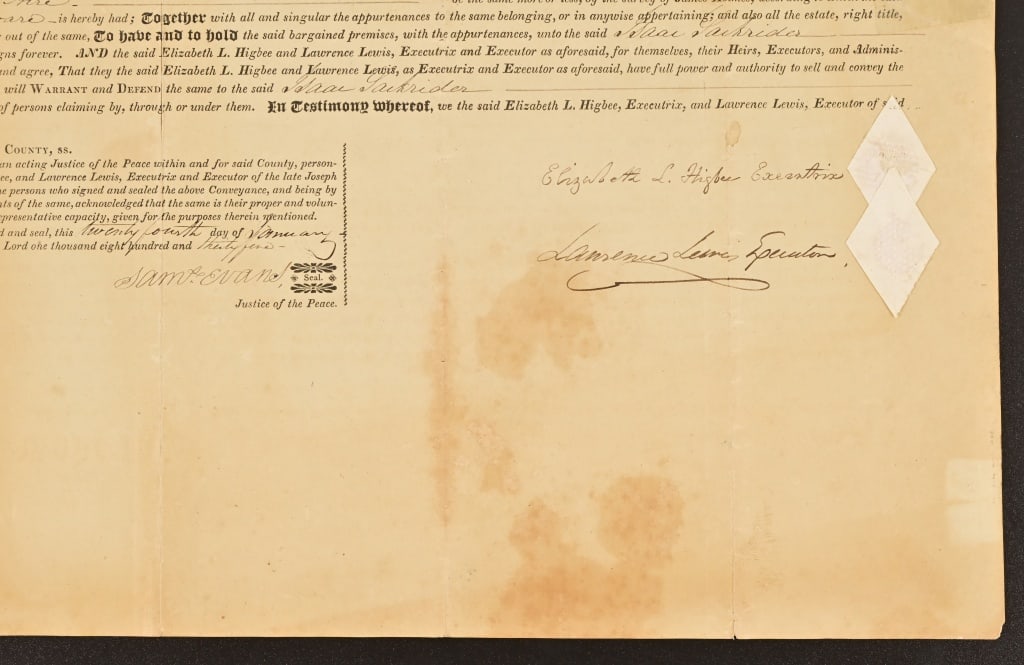 of the same more or less, by the survey of James
is hereby had; Together with all and singular the appurtenances to the same belonging, or in anywise appertaining; and also all the estate, right title,
out of the same, To have and to hold the said bargained premises, with the appurtenances, unto the said Isaac Sackrider
gns forever. AND the said Elizabeth L. Higbee and Lawrence Lewis, Executrix and Executor as aforesaid, for themselves, their Heirs, Executors, and Adminis-
nd agree, That they the said Elizabeth L. Higbee and Lawrence Lewis, as Executrix and Executor as aforesaid, have full power and authority to sell and convey the
will WARRANT and DEFEND the same to the said Isaac Sackrider
of persons claiming by, through or under them. In Testimony whereof, we the said Elizabeth L. Higbee, Executrix, and Lawrence Lewis, Executor of said
COUNTY, ss.
an acting Justice of the Peace within and for said County, person-
ee, and Lawrence Lewis, Executrix and Executor of the late Joseph
he persons who signed and sealed the above Conveyance, and being by
nts of the same, acknowledged that the same is their proper and volun-
epresentative capacity, given for the purposes therein mentioned.
d and seal, this twenty fourth day of January
Lord one thousand eight hundred and thirty five
Saml. Evans, Seal.
Justice of the Peace.
Elizabeth L. Higbee Executrix
Lawrence Lewis Executor.